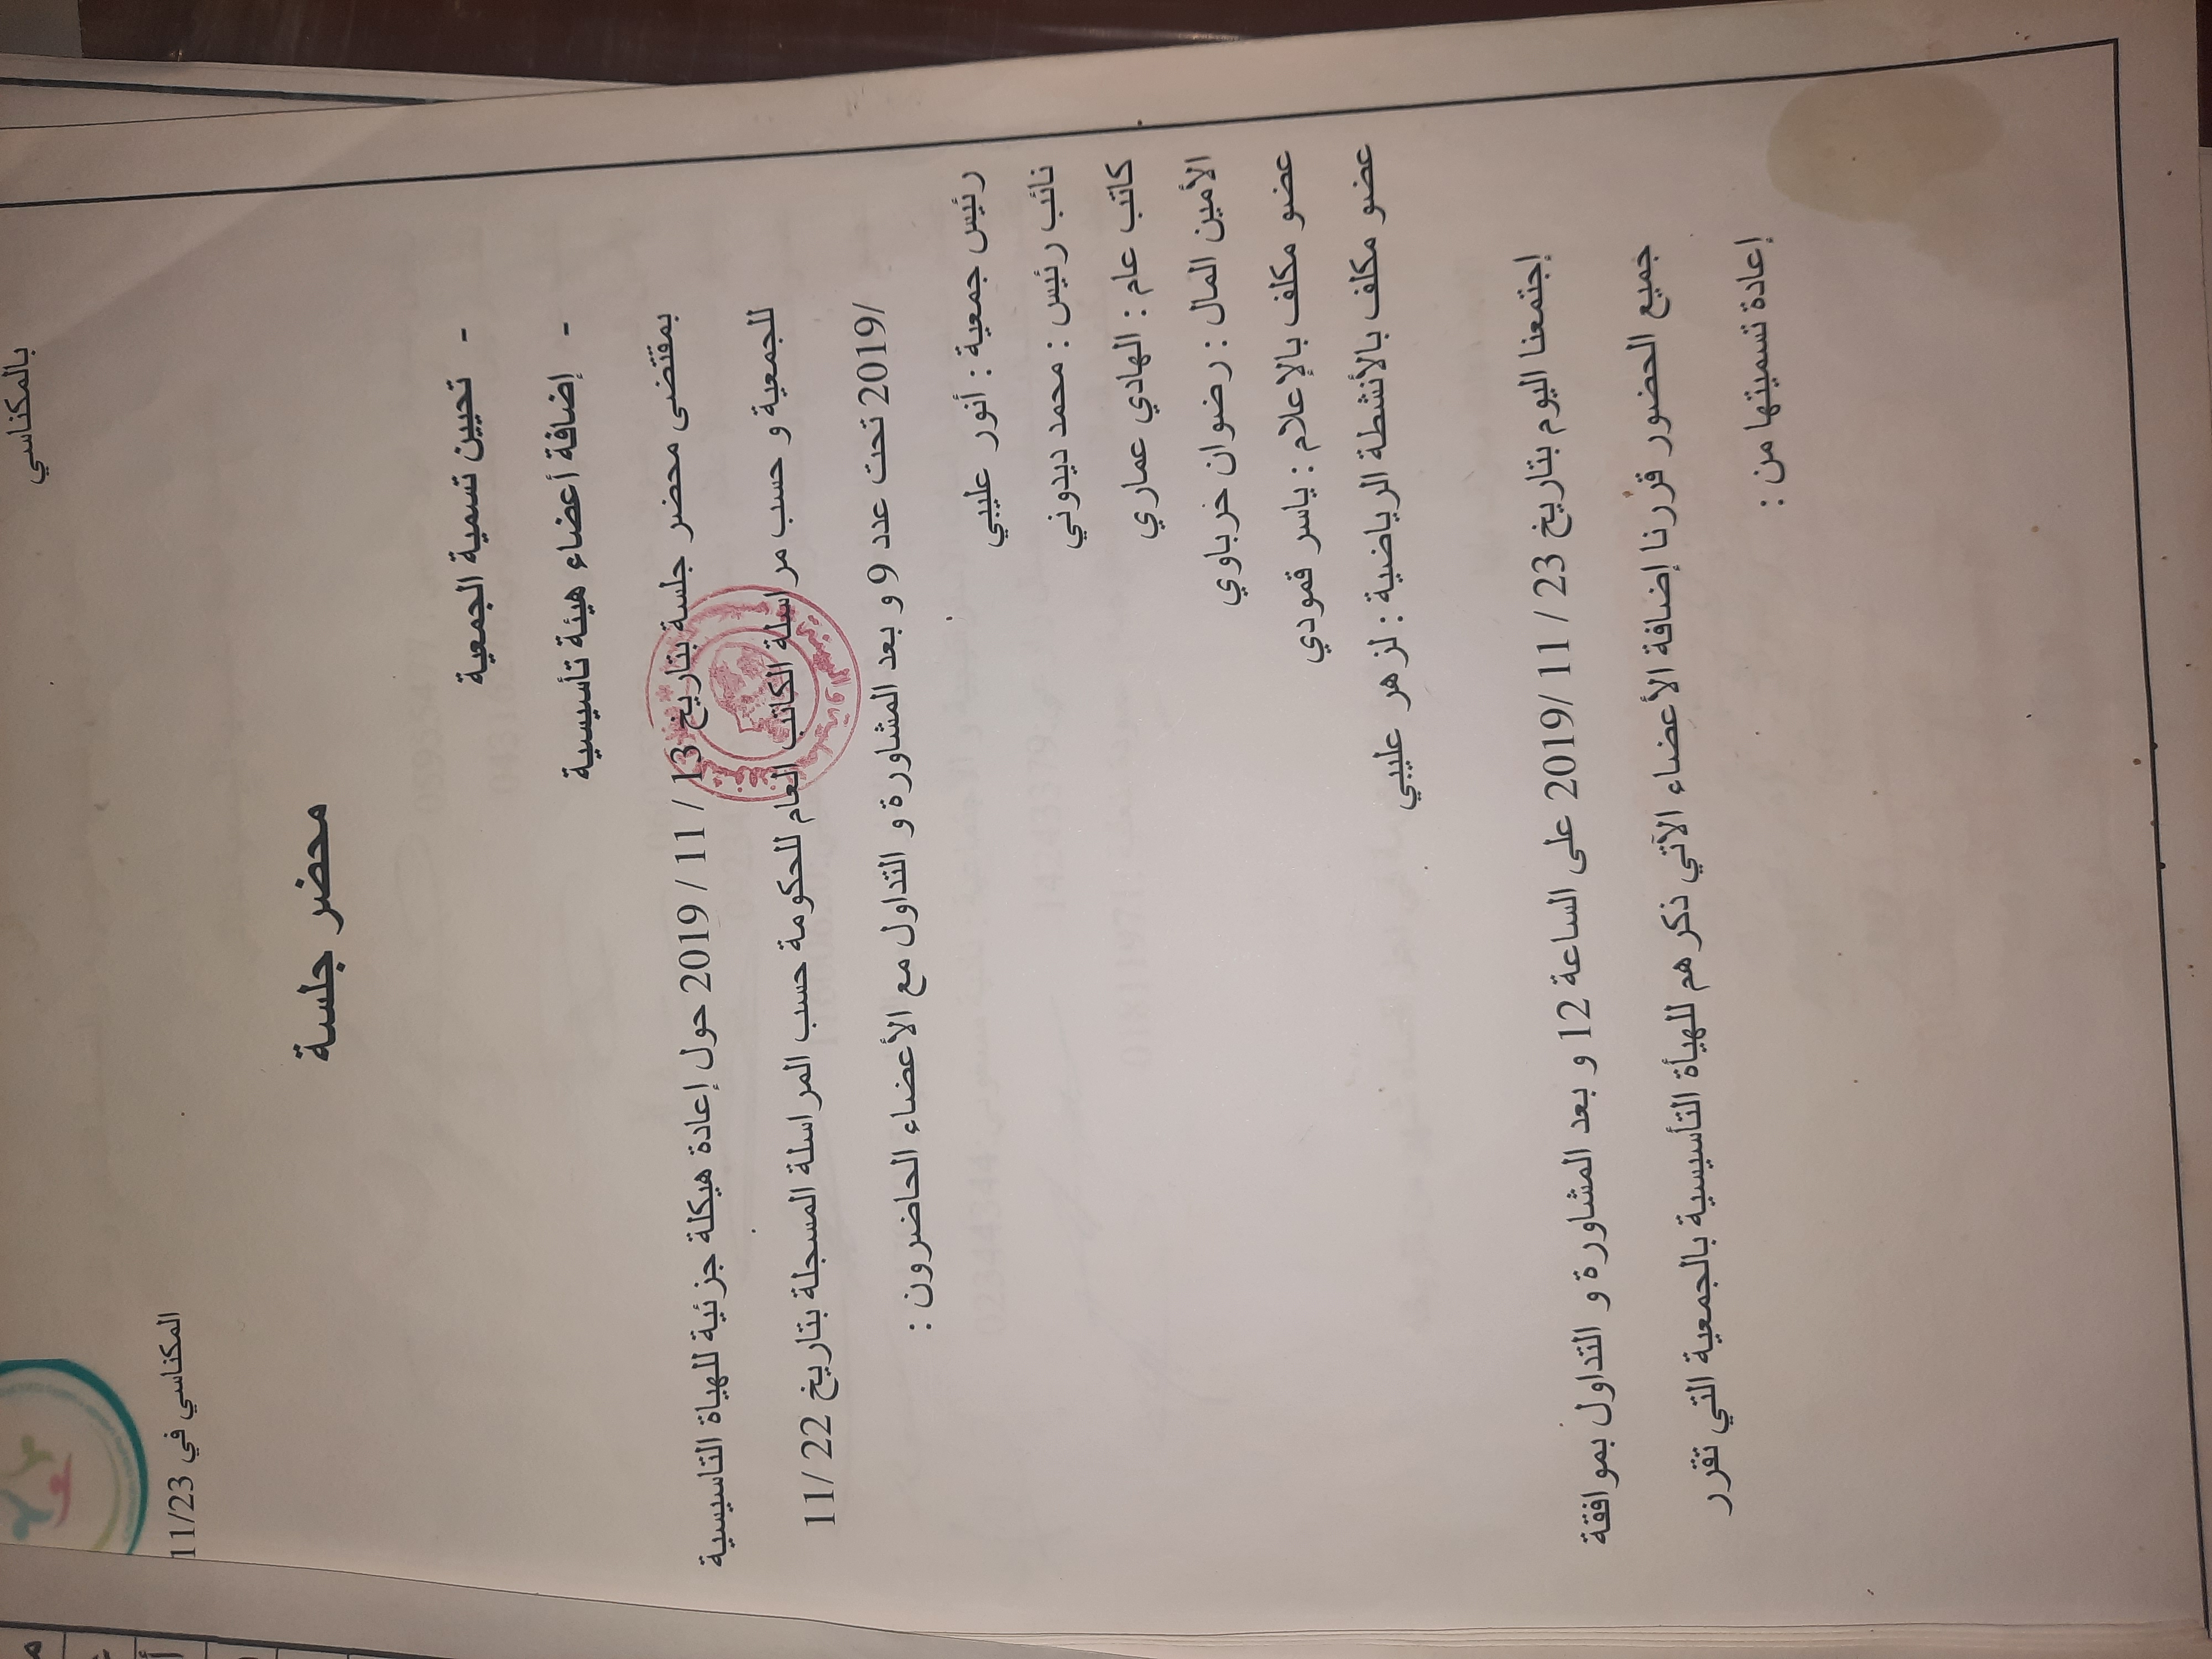 بالمكناسي
المكناسي في 11/23
محضر جلسة
- تحيين تسمية الجمعية
- إضافة أعضاء هيئة تأسيسية
بمقتضى محضر جلسة بتاريخ 13 / 11 / 2019 حول إعادة هيكلة جزئية للهياة التاسيسية
للجمعية و حسب مراسلة الكاتب العام للحكومة حسب المراسلة المسجلة بتاريخ 22 /11
/2019 تحت عدد 9 و بعد المشاورة و التداول مع الأعضاء الحاضرون :
رئيس جمعية : أنور عليبي
نائب رئيس : محمد ديدوني
كاتب عام : الهادي عماري
الأمين المال : رضوان خرباوي
عضو مكلف بالإعلام : ياسر قمودي
عضو مكلف بالأنشطة الرياضية : لزهر عليبي
إجتمعنا اليوم بتاريخ 23 / 11 /2019 على الساعة 12 و بعد المشاورة و التداول بموافقة
جميع الحضور قررنا إضافة الأعضاء الآتي ذكرهم للهيأة التأسيسية بالجمعية التي تقرر
إعادة تسميتها من :